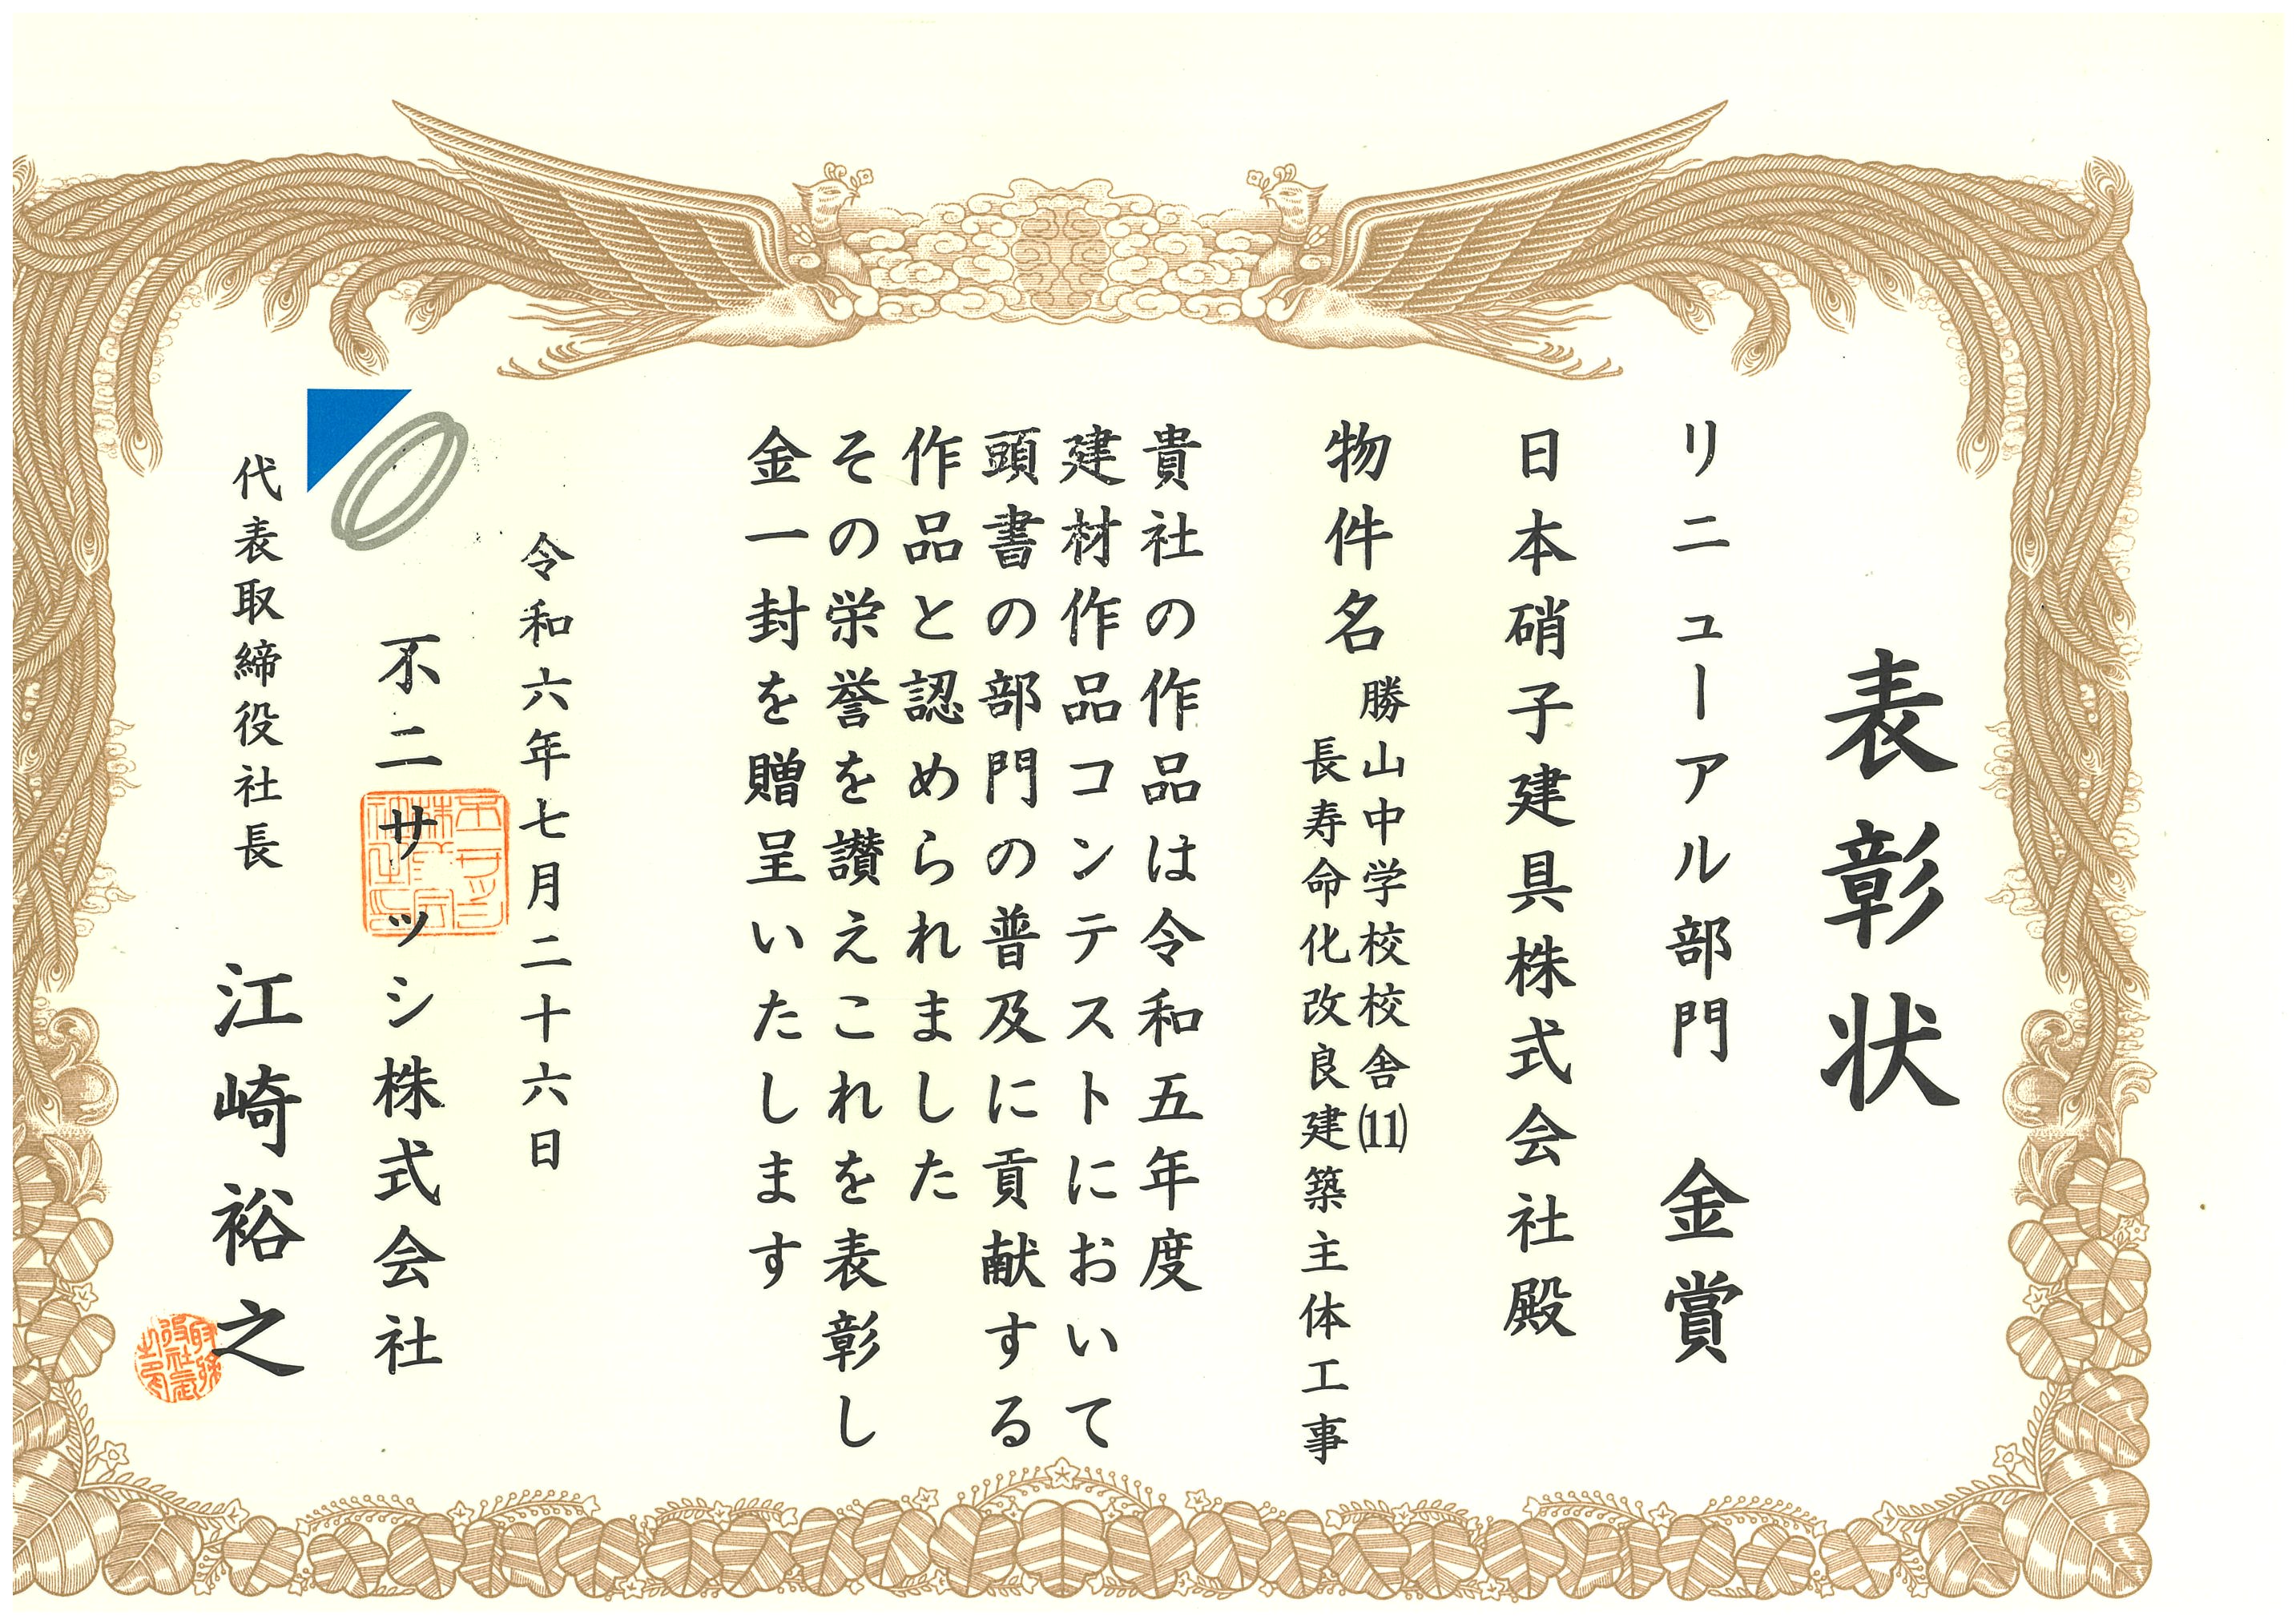 表彰状
リニューアル部門 金賞
日本硝子建具株式会社殿
物件名 勝山中学校校舎(11)
長寿命化改良建築主体工事
貴社の作品は令和五年度
建材作品コンテストにおいて
頭書の部門の普及に貢献する
作品と認められました
その栄誉を讃えこれを表彰し
金一封を贈呈いたします
令和六年七月二十六日
不二サッシ株式会社
代表取締役社長 江崎裕之